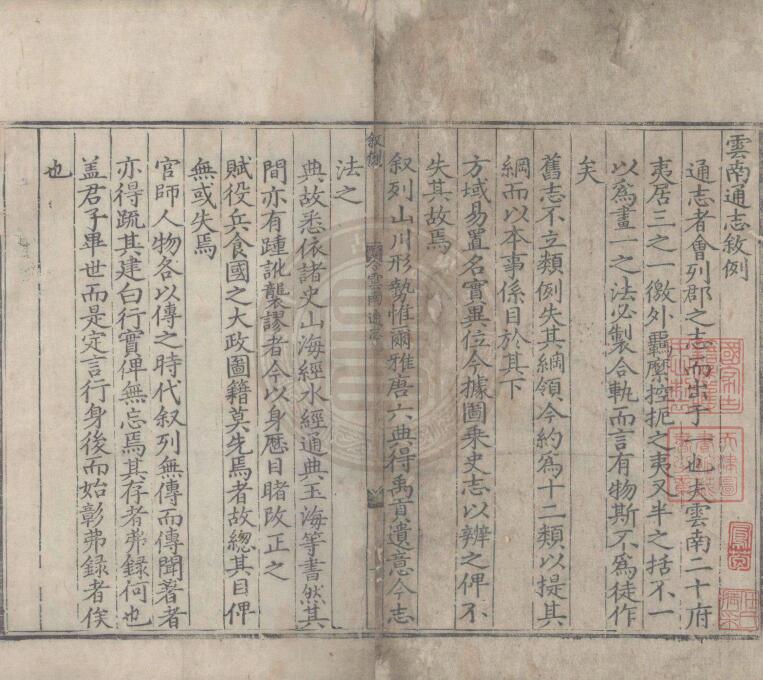 雲南通志敘例
通志者會列郡之志而出于一也夫雲南二十府
夷居三之一徼外羈縻控扼之夷又半之括不一
以為畫一之法必製合軌而言有物斯不為徒作
矣
舊志不立類例失其綱領今約為十二類以提其
綱而以本事係目於其下
方域易置名實異位今據圖乘史志以辨之俾不
失其故焉
叙列山川形勢惟爾雅唐六典得禹貢遺意今志
叙例
法之
典故悉依諸史山海經水經通典玉海等書然其
間亦有踵訛襲謬者今以身歷目睹改正之
賦役兵食國之大政圖籍莫先焉者故總其目俾
無或失焉
官師人物各以傳之時代叙列無傳而傳聞著者
亦得疏其建白行實俾無忘焉其存者弗録何也
盖君子畢世而是定言行身後而始彰弗録者俟
也